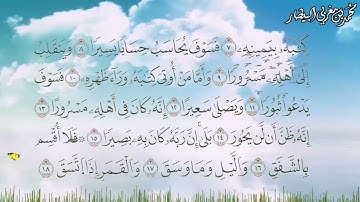 محمد بن مغربي البيضار
كِتَٰبَهُۥ بِيَمِينِهِۦ ٧ فَسَوْفَ يُحَاسَبُ حِسَابًا يَسِيرًا ٨ وَيَنقَلِبُ
إِلَىٰٓ أَهْلِهِۦ مَسْرُورًا ٩ وَأَمَّا مَنْ أُوتِىَ كِتَٰبَهُۥ وَرَآءَ ظَهْرِهِۦ ١٠ فَسَوْفَ
يَدْعُوا۟ ثُبُورًا ١١ وَيَصْلَىٰ سَعِيرًا ١٢ إِنَّهُۥ كَانَ فِىٓ أَهْلِهِۦ مَسْرُورًا ١٣
إِنَّهُۥ ظَنَّ أَن لَّن يَحُورَ ١٤ بَلَىٰٓ إِنَّ رَبَّهُۥ كَانَ بِهِۦ بَصِيرًا ١٥ فَلَآ أُقْسِمُ
بِٱلشَّفَقِ ١٦ وَٱلَّيْلِ وَمَا وَسَقَ ١٧ وَٱلْقَمَرِ إِذَا ٱتَّسَقَ ١٨